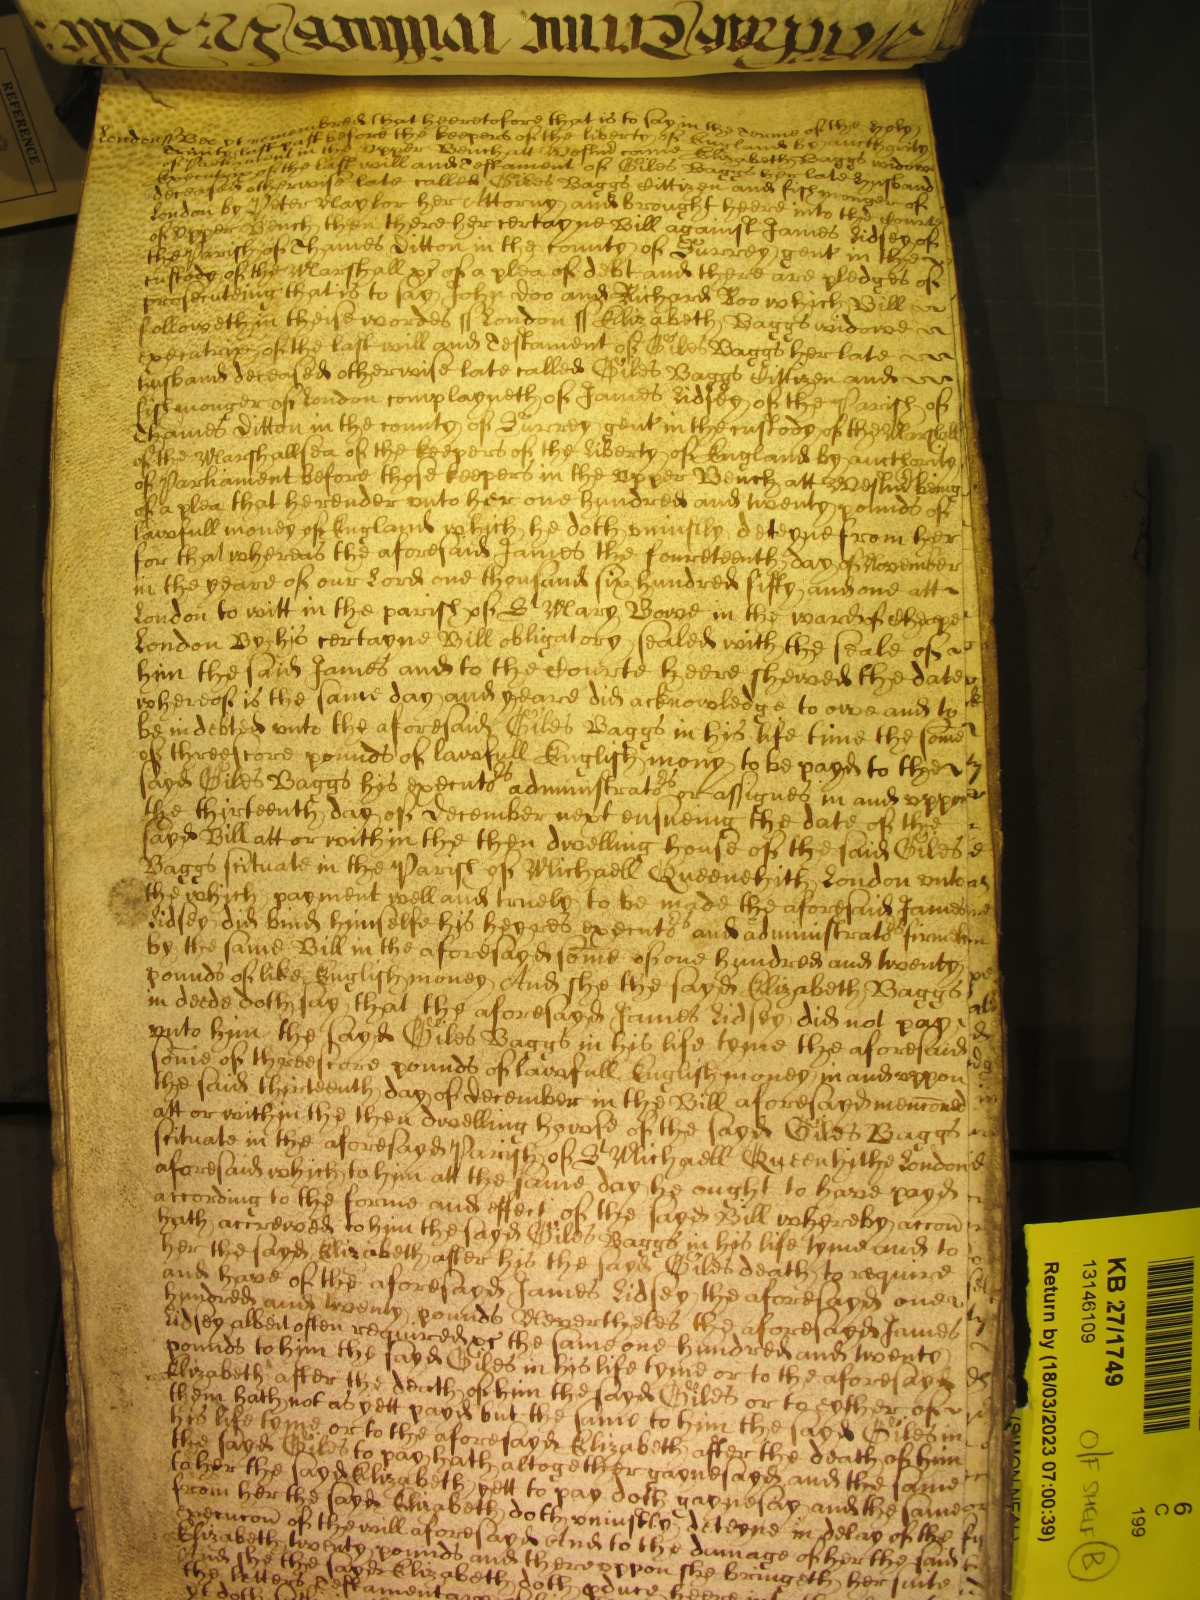 REFERENCE
London ss Bee yt remembred that heeretofore that is to say in the terme of the holy
Trinity last past before the keepers of the liberty of England by aucthority
of Parliament in the Upper Bench att Westmr came Elizabeth Baggs widdow
Executrix of the last will and Testament of Giles Baggs her late husband
deceased otherwise late called Giles Baggs Cittizen and fishmonger of
London by Peter Naylor her Attorny and brought heere into the Courte
of Upper Bench then there her certayne Bill against James Lidsey of
the Parish of Thames Ditton in the county of Surrey gent in the
custody of the Marshall &c of a plea of debt and there are pledges of
prosecuteing that is to say John Doo and Richard Roo which Bill
followeth in theise wordes ss London ss Elizabeth Baggs widowe
executrix of the last will and Testament of Giles Baggs her late
husband deceased otherwise late called Giles Baggs Cittizen and
fishmonger of London complayneth of James Lidsey of the Parish of
Thames Ditton in the county of Surrey gent in the custody of the Marshall
of the Marshallsea of the keepers of the Liberty of England by aucthority
of Parliament before those keepers in the Upper Bench att Westmr being
of a plea that he render unto her one hundred and twenty pounds of
lawfull money of England which he doth uniustly deteyne from her
for that whereas the aforesaid James the foureteenth day of November
in the yeare of our Lord one thousand six hundred fifty and one att
London to witt in the parish of St Mary Bowe in the ward of Cheape
London By his certayne Bill obligatory sealed with the seale of
him the said James and to the Courte heere shewed the date
whereof is the same day and yeare did acknowledge to owe and to
be indebted unto the aforesaid Giles Baggs in his life time the some
of threescore pounds of lawfull English mony to be payd to the
sayd Giles Baggs his executors administrators or assignes in and uppon
the thirteenth day of December next ensueing the date of the
sayd Bill att or within the then dwelling house of the said Giles
Baggs scituate in the Parish of Michaell Queenehith London unto
the which payment well and truely to be made the aforesaid James
Lidsey did bind himselfe his heyres executors and administrators firmely
by the same Bill in the aforesayd some of one hundred and twenty
pounds of like English money And she the sayd Elizabeth Baggs
in deede doth say that the aforesayd James Lidsey did not pay
unto him the sayd Giles Baggs in his life tyme the aforesaid
some of threescore pounds of lawfull English money in and uppon
the said thirteenth day of December in the Bill aforesayd menconed
att or within the then dwelling howse of the sayd Giles Baggs
scituate in the aforesayd Parish of St Michaell Queenhithe London
aforesaid which to him att the same day he ought to have payd
according to the forme and effect of the sayd Bill whereby accon
hath accrewed to him the sayd Giles Baggs in his life tyme and to
her the sayd Elizabeth after his the sayd Giles death to require
and have of the aforesayd James Lidsey the aforesayd one
hundred and twenty pounds Nevertheles the aforesayd James
Lidsey albeit often required &c the same one hundred and twenty
pounds to him the sayd Giles in his life tyme or to the aforesayd
Elizabeth after the death of him the sayd Giles or to eyther of
them hath not as yett payd but the same to him the sayd Giles in
his life tyme or to the aforesayd Elizabeth after the death of him
the sayd Giles to pay hath altogether gaynesayd and the same
to her the sayd Elizabeth yett to pay doth gaynesay and the same
from her the sayd Elizabeth doth uniustly deteyne in delay of the
execucon of the will aforesayd And to the damage of her the said
Elizabeth twenty pounds and thereuppon she bringeth her suite
And she the sayd Elizabeth doth produce heere
the letters Testamentary
yt doth
KB 27/1749
13146109
Return by (18/03/2023 07:00:39)
(SIMON NEAL)
O/F SHELF B
6
C
199